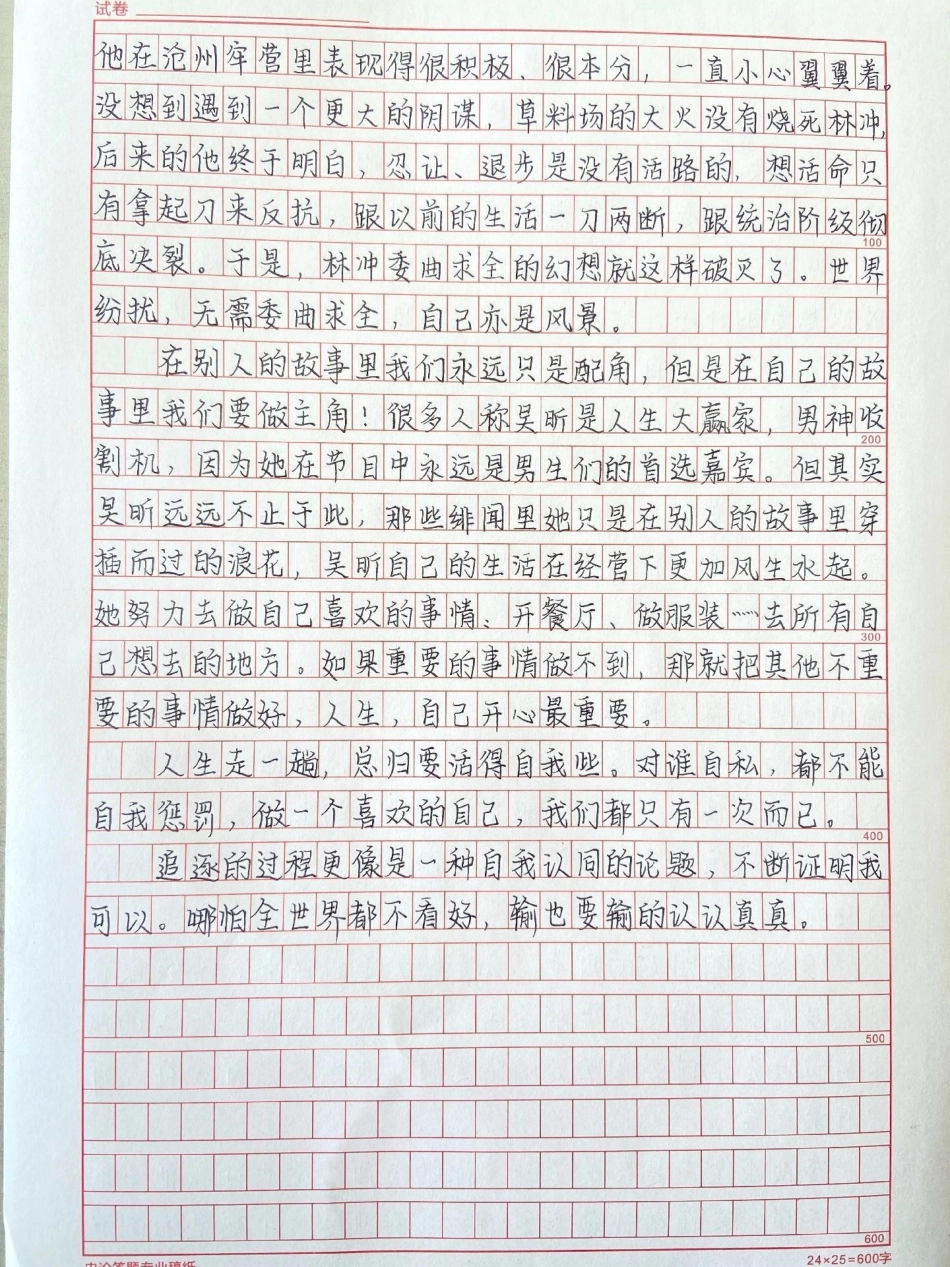 试卷
他在沧州牢营里表现得很积极、很本分，一直小心翼翼着。
没想到遇到一个更大的阴谋，草料场的大火没有烧死林冲，
后来的他终于明白，忍让、退步是没有活路的，想活命只
有拿起刀来反抗，跟以前的生活一刀两断，跟统治阶级彻
100
底决裂。于是，林冲委曲求全的幻想就这样破灭了。世界
纷扰，无需委曲求全，自己亦是风景。
在别人的故事里我们永远只是配角，但是在自己的故
事里我们要做主角！很多人称吴昕是人生大赢家，男神收
200
割机，因为她在节目中永远是男生们的首选嘉宾。但其实
吴昕远远不止于此，那些绯闻里她只是在别人的故事里穿
插而过的浪花，吴昕自己的生活在经营下更加风生水起。
她努力去做自己喜欢的事情：开餐厅、做服装……去所有自
300
己想去的地方。如果重要的事情做不到，那就把其他不重
要的事情做好，人生，自己开心最重要。
人生走一趟，总归要活得自我些。对谁自私，都不能
自我惩罚，做一个喜欢的自己，我们都只有一次而已。
400
追逐的过程更像是一种自我认同的论题，不断证明我
可以。哪怕全世界都不看好，输也要输的认认真真。
500
600
24×25=600字